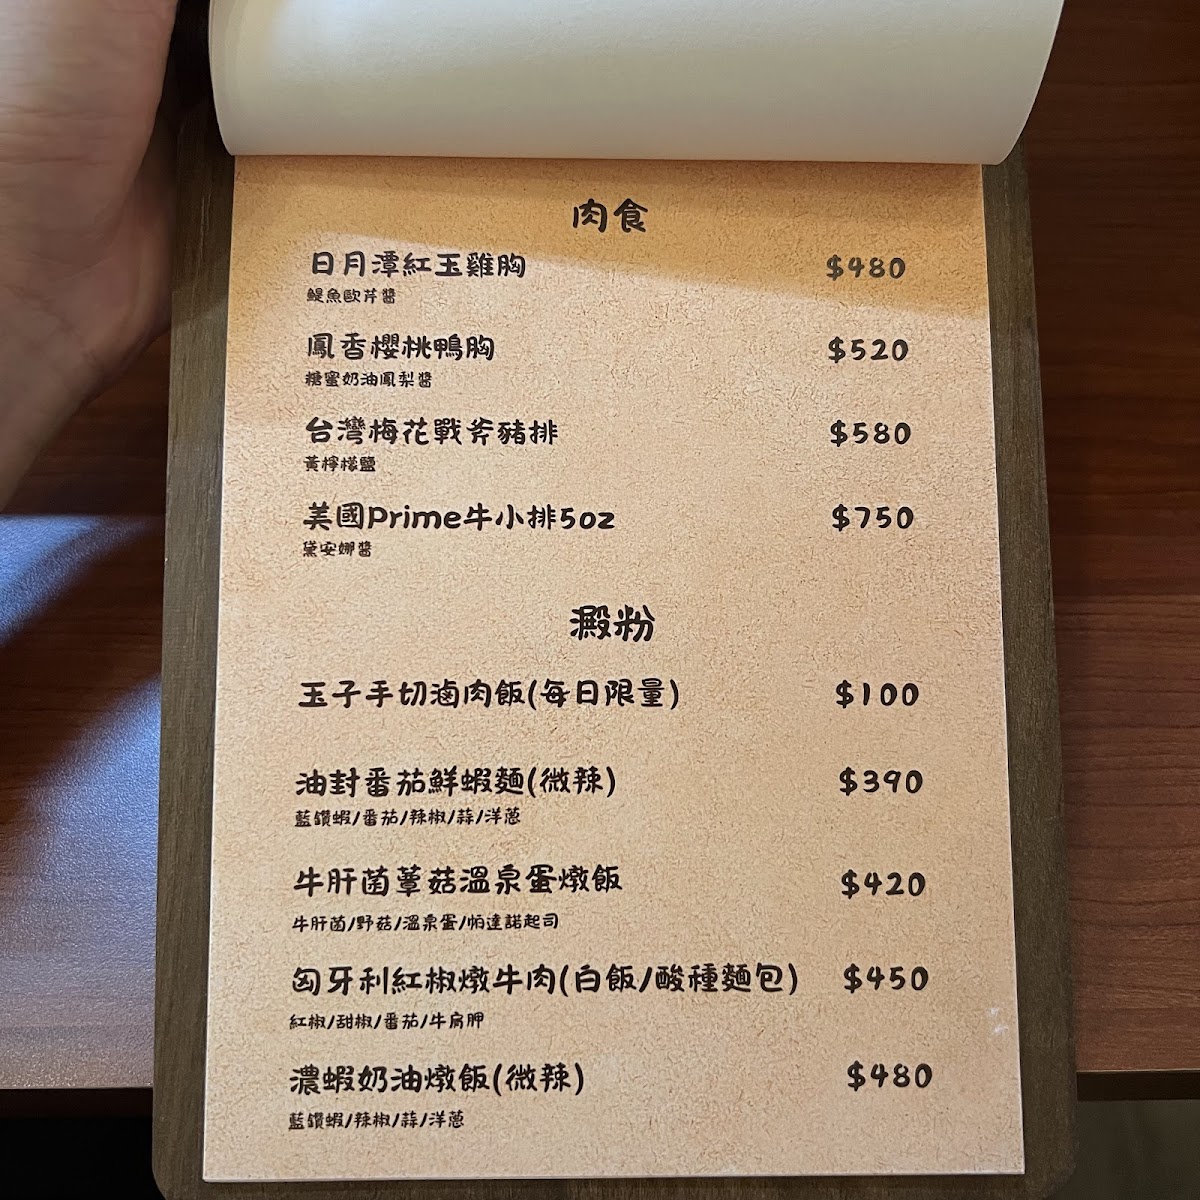 肉食
日月潭紅玉雞胸 $480
鯷魚歐芹醬
鳳香櫻桃鴨胸 $520
糖蜜奶油鳳梨醬
台灣梅花戰斧豬排 $580
黃檸檬鹽
美國Prime牛小排5oz $750
黛安娜醬
澱粉
玉子手切滷肉飯(每日限量) $100
油封番茄鮮蝦麵(微辣) $390
藍鑽蝦/番茄/辣椒/蒜/洋蔥
牛肝菌蕈菇溫泉蛋燉飯 $420
牛肝菌/野菇/溫泉蛋/帕達諾起司
匈牙利紅椒燉牛肉(白飯/酸種麵包) $450
紅椒/甜椒/番茄/牛肩胛
濃蝦奶油燉飯(微辣) $480
藍鑽蝦/辣椒/蒜/洋蔥